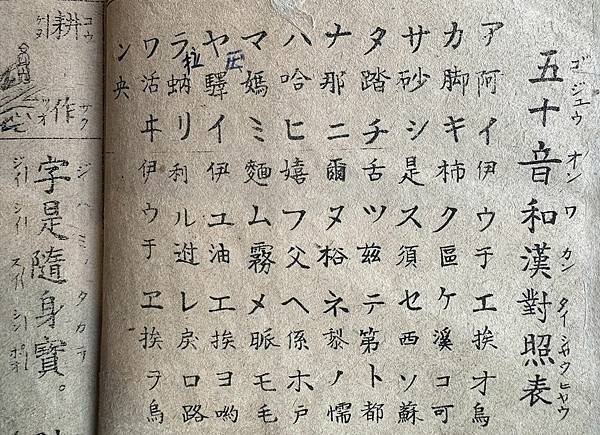 ゴ ジユウ オン ワ カン タイ シヤウ ヒヤウ
五十音和漢對照表
ア阿 イ伊 ウ于 エ挨 オ烏
カ脚 キ柿 ク區 ケ溪 コ可
サ砂 シ是 ス須 セ西 ソ蘇
タ踏 チ舌 ツ茲 テ第 ト都
ナ那 ニ爾 ヌ ネ ノ懦
ハ哈 ヒ嬉 フ父 ヘ係 ホ戶
マ媽 ミ麵 ム霧 メ脈 モ毛
ヤ驛 イ伊 ユ油 エ挨 ヨ喲
拉
ラ蚋 リ利 ル レ戾 ロ路
ワ活 ヰ伊 ウ于 ヱ挨 ヲ烏
ン央
コウ サク
耕作
ジ ハ ミ ノ タカラ
字是隨身寶。